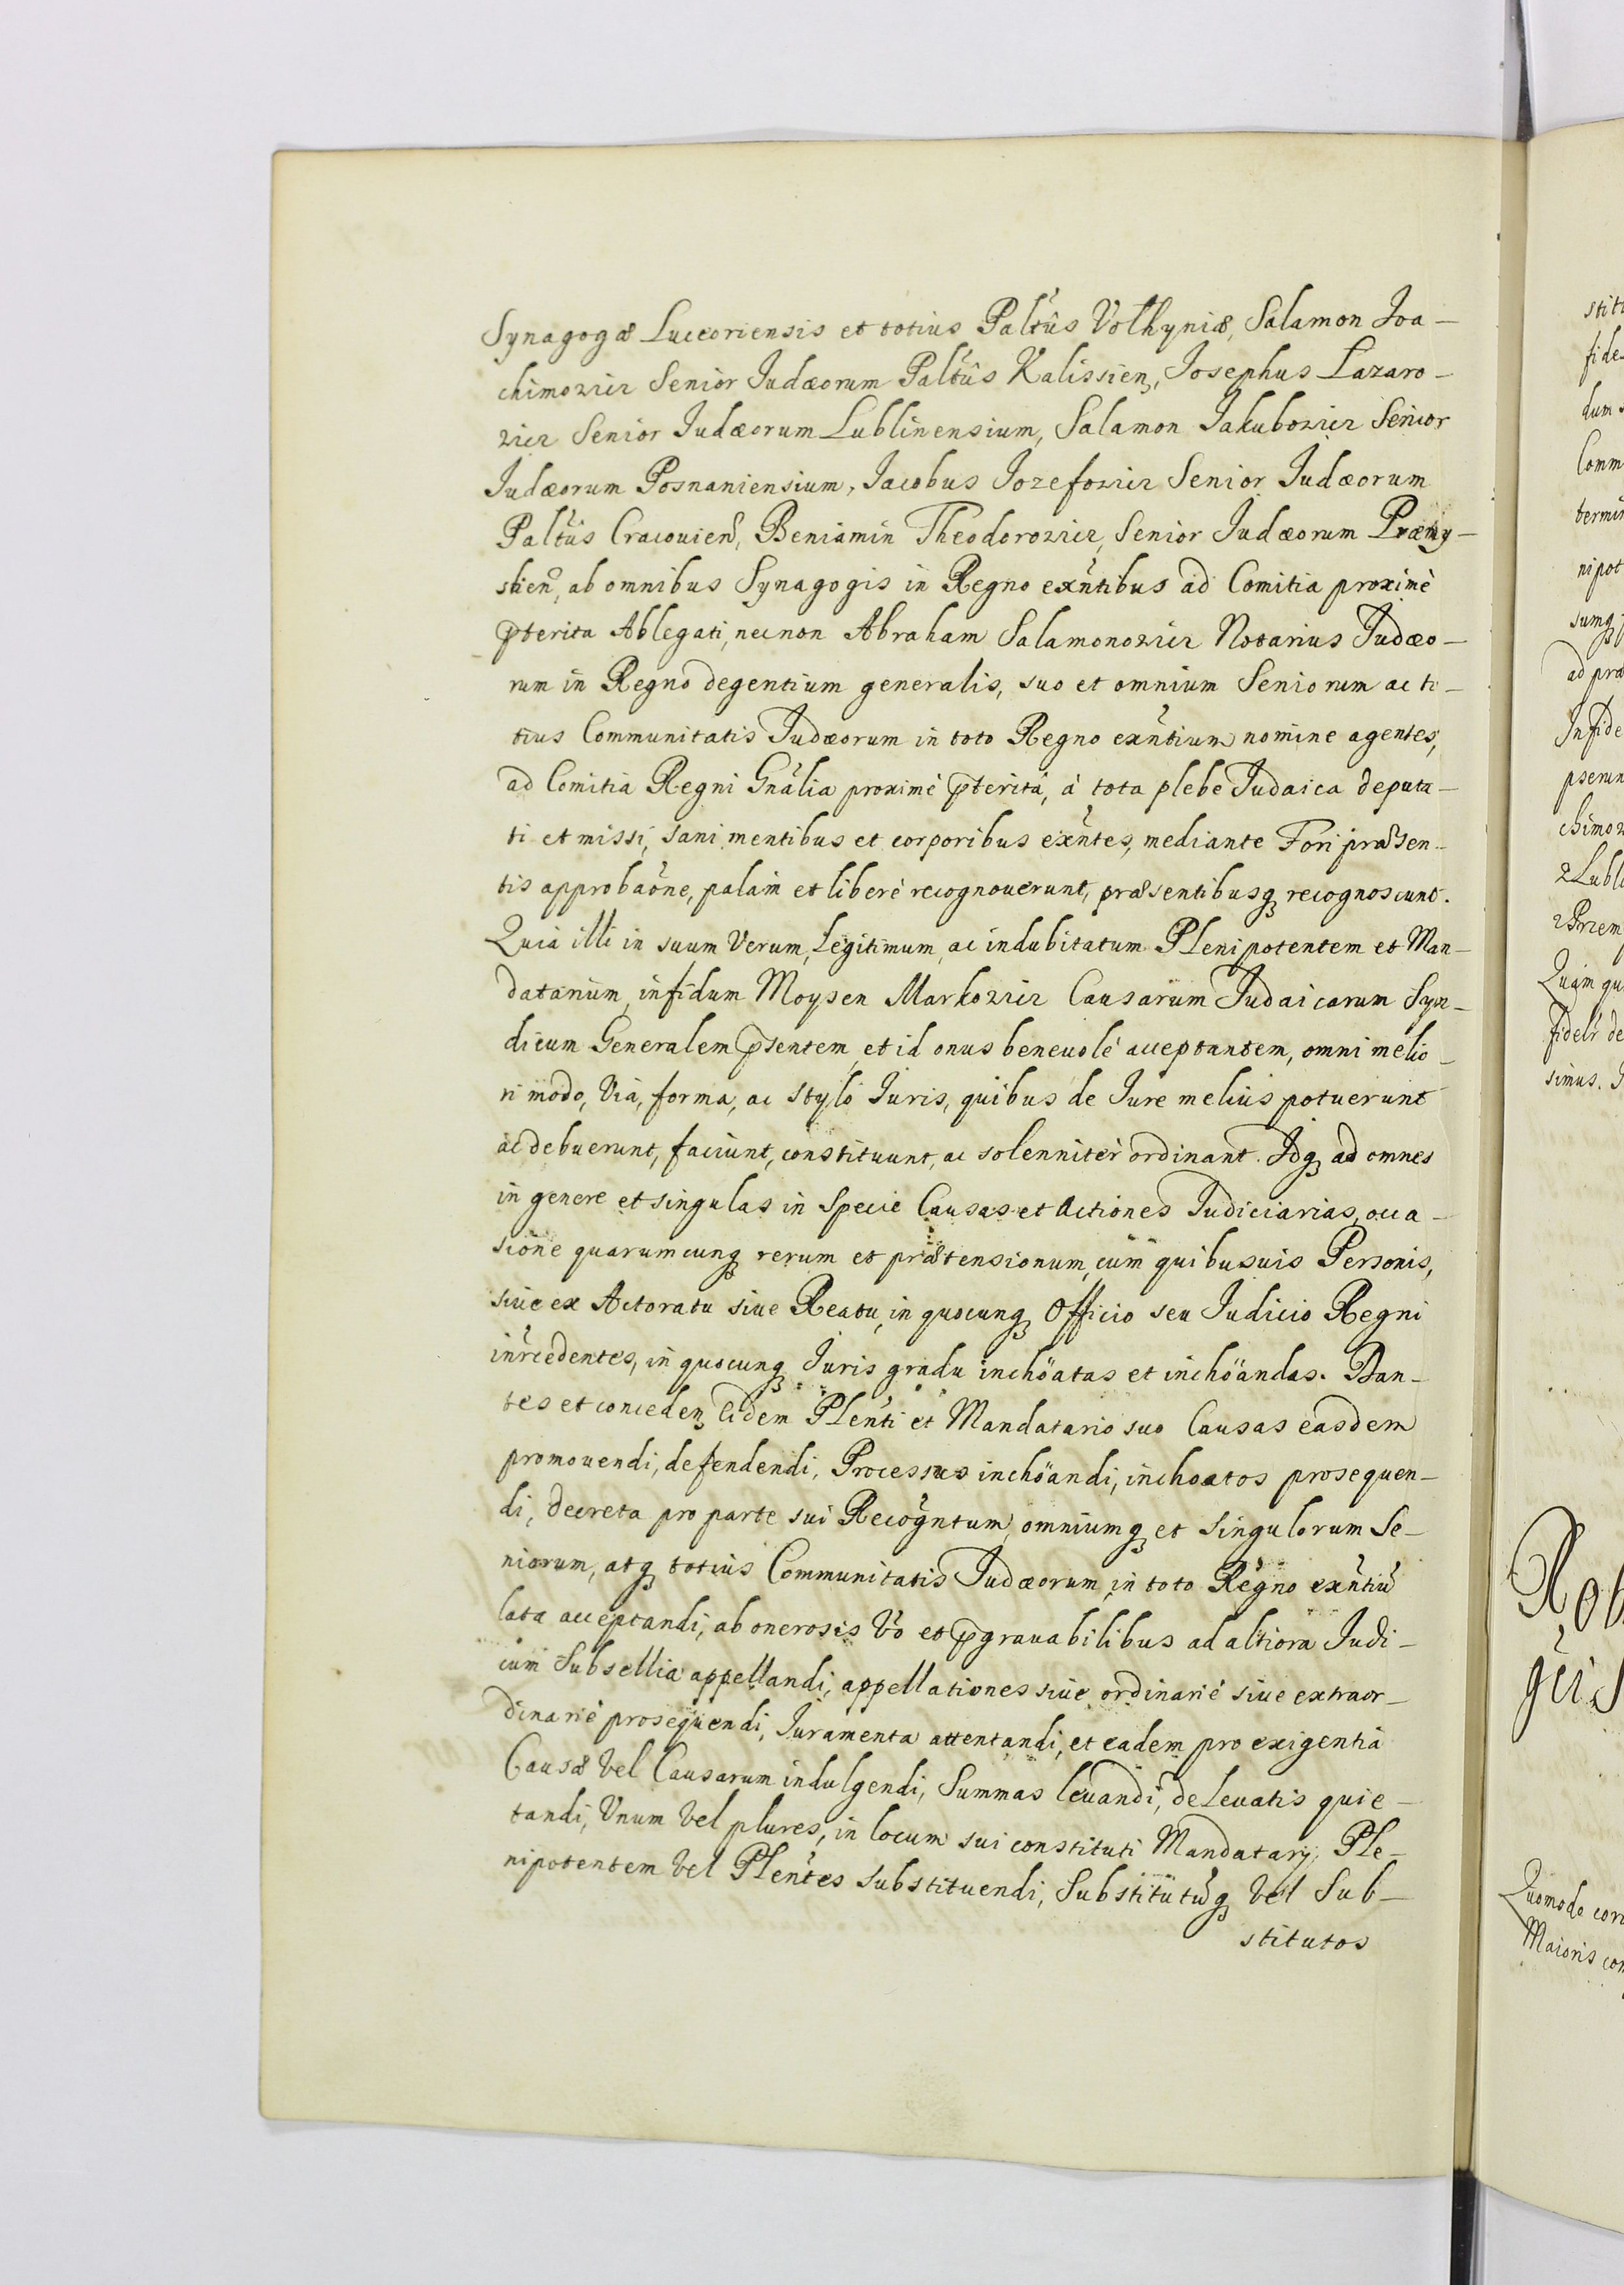 Synagogæ Luceoriensis et totius Palttûs Volhyniæ, Salamon Ioa-
chimowicz Senior Iudæorum Paltûs Kalissien, Iosephus Lazaro-
wicz Senior Iudæorum Lublinensium, Salamon Iakubowicz Senior
Iudæorum Posnaniensium, Iacobus Iozefowicz Senior Iudæorum
Paltûs Cracouien, Beniamin Theodorowicz, Senior Iudæorum Præmy-
slien, ab omnibus Synagogis in Regno exntibus ad Comitia proximè
pterita Ablegati, necnon Abraham Salamonowicz Notarius Iudæo-
rum in Regno degentium generalis, suo et omnium Seniorum ac to-
tius Communitatis Iudæorum in toto Regno exntium nomine agentes,
ad Comitia Regni Gnalia proximè pterita, à tota plebe Iudaica deputa-
ti et missi, sani mentibus et corporibus exntes, mediante Fori præsen-
tis approbaone, palam et liberè recognouerunt, præsentibusq recognoscunt.
Quia illi in suum Verum, Legitimum, ac indubitatum Plenipotentem et Man-
datarium, infidum Moysen Markowicz Causarum Iudaicarum Syn-
dicum Generalem psentem, et id onus beneuolè acceptantem, omni melio-
ri modo, Via, forma, ac stylo Iuris, quibus de Iure melius potuerunt
ac debuerunt, faciunt, constituunt, ac solenniter ordinant. Idq ad omnes
in genere et singulas in Specie Causas et Actiones Iudiciarias, occa-
sione quarumcunq rerum et prætensionum, cum quibusuis Personis,
siue ex Actoratu siue Reatu, in quocunq Officio seu Iudicio Regni
inrcedentes, in quocunq Iuris gradu inchöatas et inchöandas. Dan-
tes et conceden eidem Plenti et Mandatario suo Causas easdem
promouendi, defendendi, Processus inchöandi, inchoatos prosequen-
di, decreta pro parte sui Recogntum, omniumq et singulorum Se-
niorum, atq totius Communitatis Iudæorum, in toto Regno exntiu
lata acceptandi, ab onerosis Vo et pgrauabilibus ad altiora Iudi-
cium Subsellia appellandi, appellationes siue ordinariè siue extraor-
dinariè prosequendi, Iuramenta attentandi, et eadem pro exigentia
Causæ Vel Causarum indulgendi, Summas leuandi, de Leuatis quie-
tandi, Vnum Vel plures, in locum sui constituti Mandatarij, Ple-
nipotentem Vel Plentes substituendi, Substitutuq Vel Sub-
stitutos